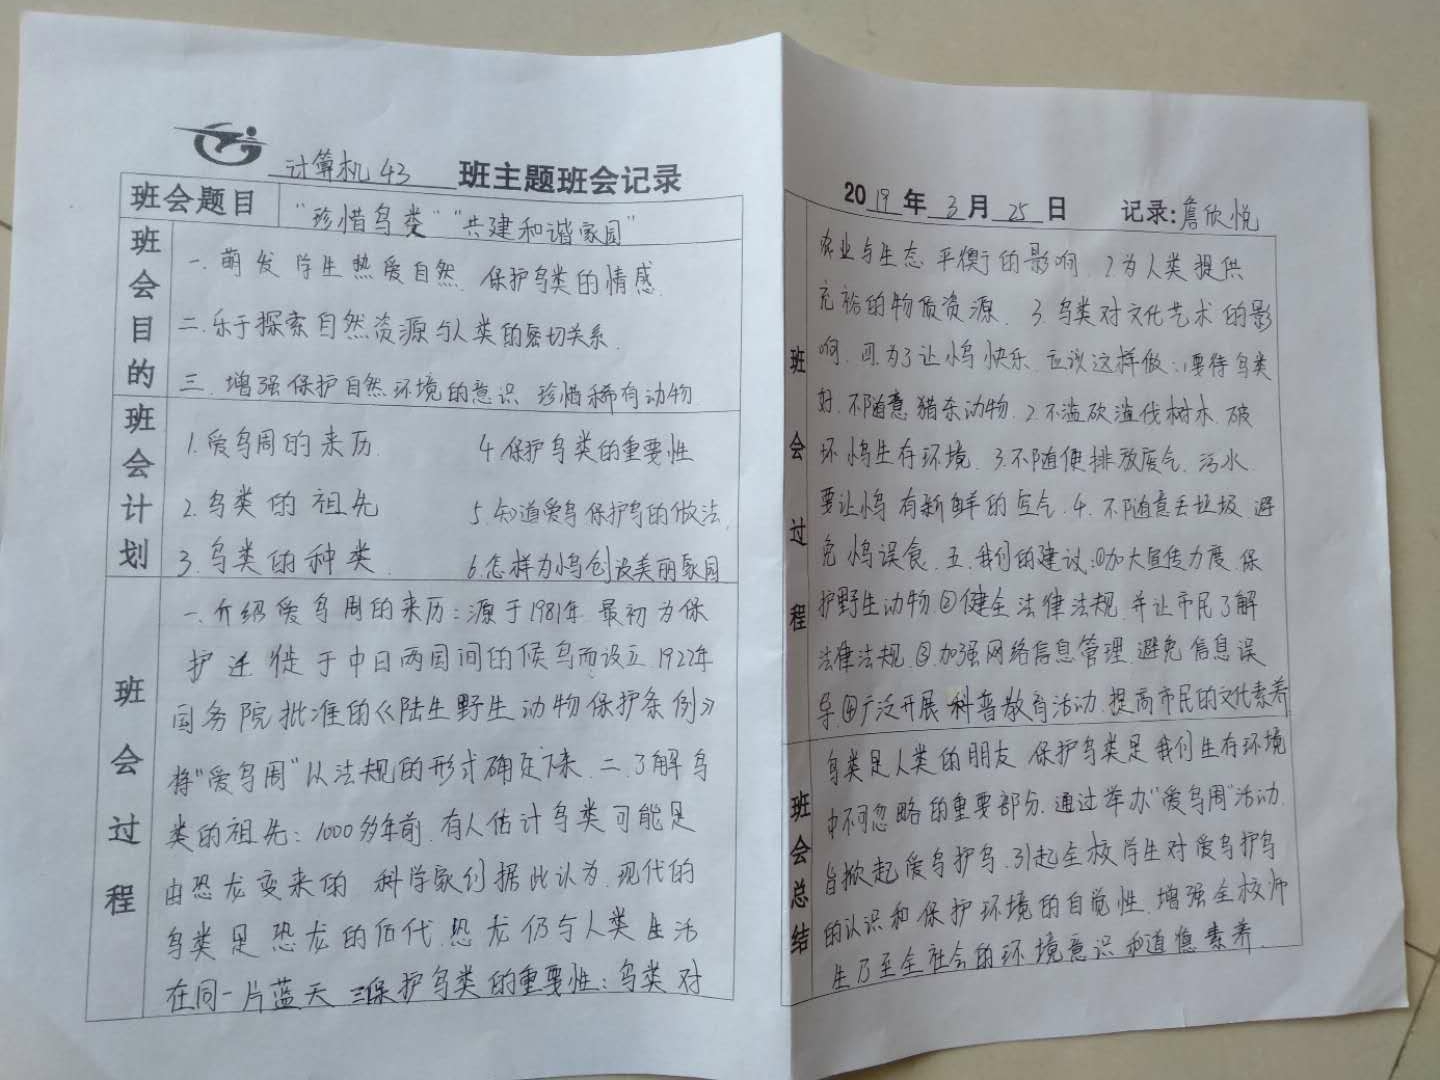 计算机43 班主题班会记录
班会题目 “珍惜鸟类”“共建和谐家园”
班会目的
一.萌发学生热爱自然.保护鸟类的情感.
二.乐于探索自然资源与人类的密切关系.
三.增强保护自然环境的意识 珍惜稀有动物.
班会计划
1.爱鸟周的来历. 4.保护鸟类的重要性
2.鸟类的祖先 5.知道爱鸟保护鸟的做法.
3.鸟类的种类. 6.怎样为小鸟创设美丽家园
班会过程
一.介绍爱鸟周的来历:源于1981年.最初为保
护迁徙于中日两国间的候鸟而设立.1922年
国务院批准的《陆生野生动物保护条例》
将“爱鸟周”以法规的形式确定下来.二.了解鸟
类的祖先:1000多年前.有人估计鸟类可能是
由恐龙变来的 科学家们据此认为.现代的
鸟类是恐龙的后代.恐龙仍与人类生活
在同一片蓝天 三保护鸟类的重要性:鸟类对
2019年3月25日 记录:詹欣悦
班会过程
农业与生态平衡的影响.2.为人类提供
充裕的物质资源. 3.鸟类对文化艺术的影
响.四.为了让小鸟快乐.应该这样做:1要待鸟类
好.不随意猎杀动物.2.不滥砍滥伐树木.破
坏小鸟生存环境.3.不随便排放废气.污水.
要让小鸟有新鲜的空气.4.不随意丢垃圾.避
免小鸟误食.五.我们的建议:①加大宣传力度.保
护野生动物②健全法律法规.并让市民了解
法律法规.③.加强网络信息管理.避免信息误
导④广泛开展科普教育活动.提高市民的文化素养
班会总结
鸟类是人类的朋友.保护鸟类是我们生存环境
中不可忽略的重要部分.通过举办“爱鸟周”活动.
旨掀起爱鸟护鸟.引起全校学生对爱鸟护鸟
的认识和保护环境的自觉性.增强全校师
生乃至全社会的环境意识和道德素养.